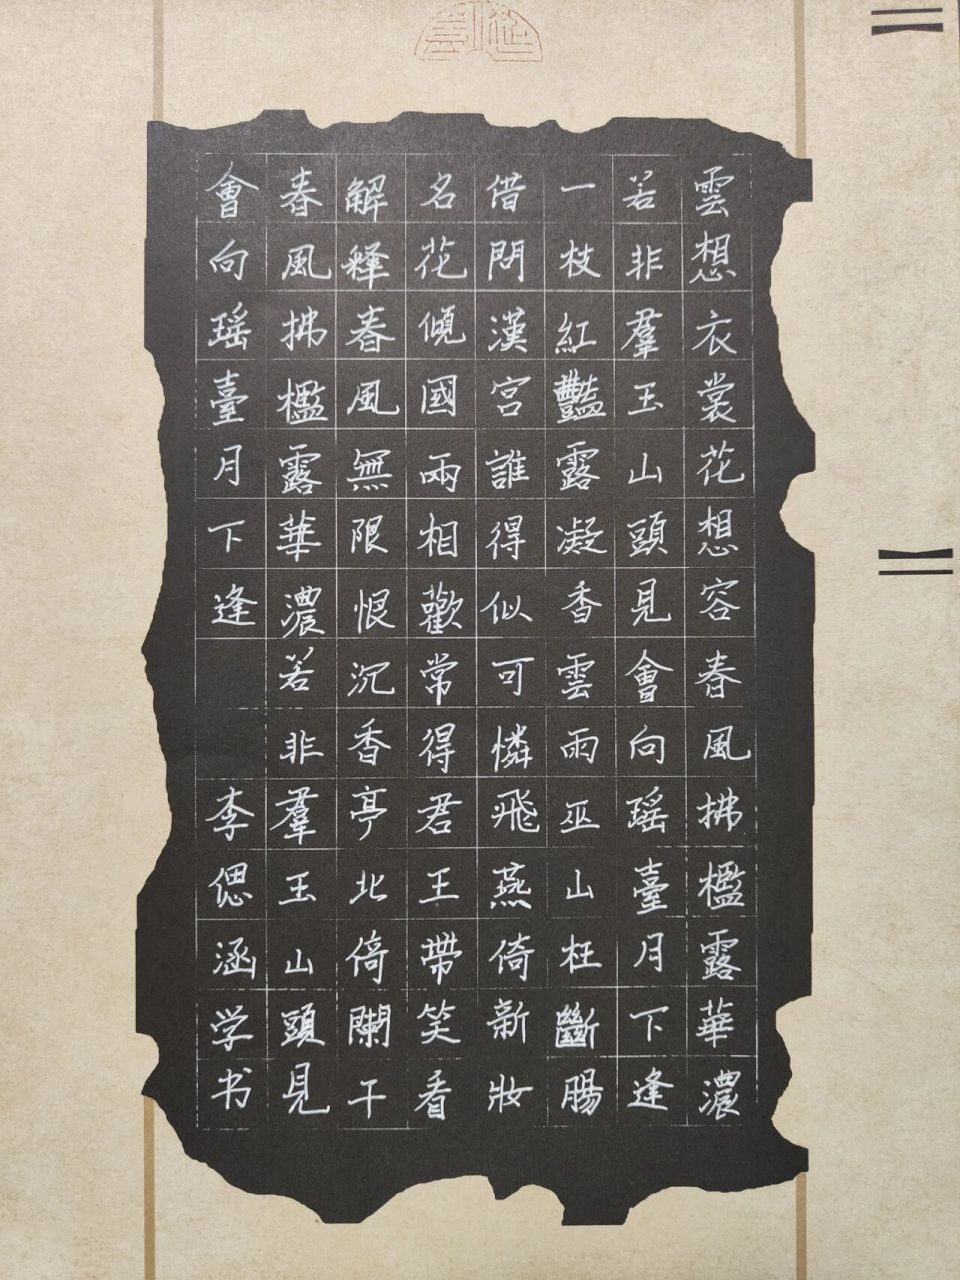 雲想衣裳花想容春風拂檻露華濃
若非羣玉山頭見會向瑶臺月下逢
一枝紅豔露凝香雲雨巫山枉斷腸
借問漢宮誰得似可憐飛燕倚新妝
名花傾國兩相歡常得君王帶笑看
解釋春風無限恨沉香亭北倚闌干
春風拂檻露華濃若非羣玉山頭見
會向瑶臺月下逢 李偲涵学书